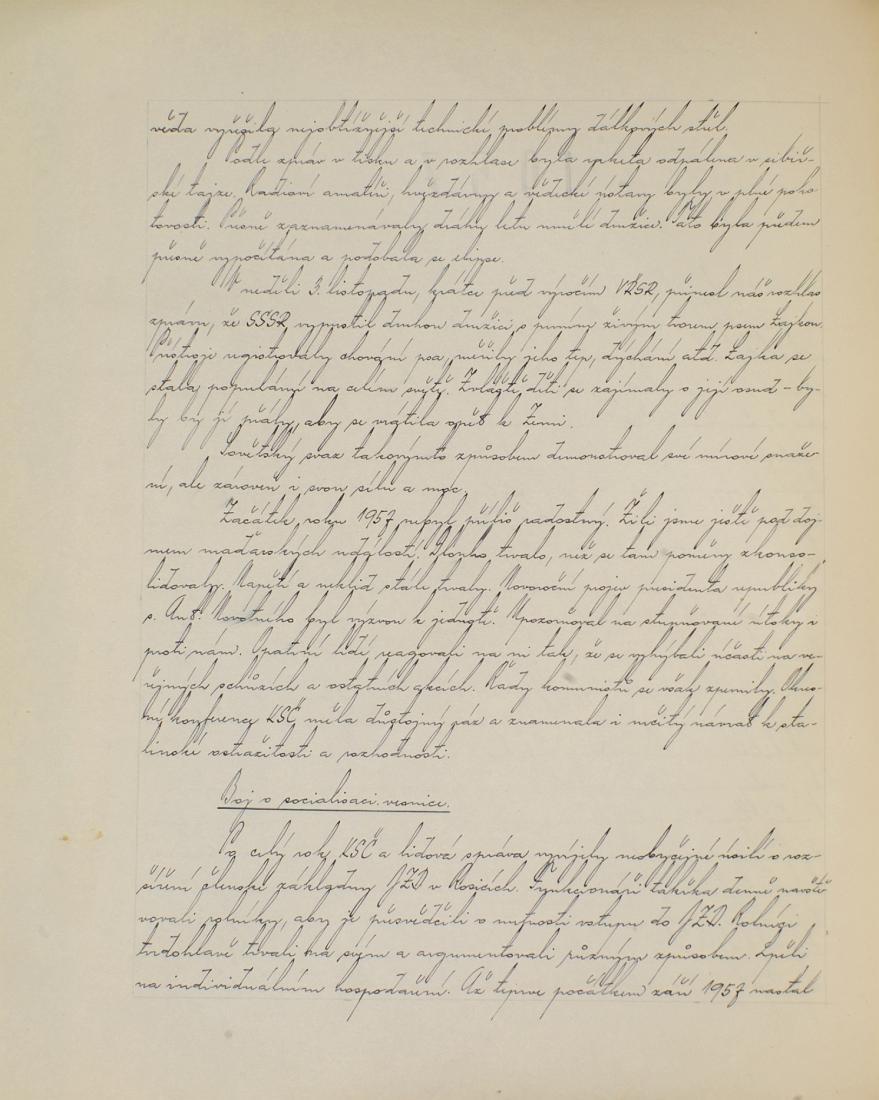 věda vyřešila nejobtížnější technické problémy dálkových střel.
Podle zpráv v tisku a v rozhlase byla raketa odpálena v sibiř-
ské tajze. Radioví amatéři, hvězdárny a vědecké ústavy byly v plné poho-
tovosti. Přesně zaznamenávaly dráhy letu umělé družice. Tato byla předem
přesně vypočítána a podobala se elipse.
V neděli 3. listopadu, krátce před výročím VŘSR, přinesl náš rozhlas
zprávu, že SSSR vypustil druhou družici s prvním živým tvorem, psem Lajkou.
Přístroje registrovaly chování psa, měřily jeho tep, dýchání atd. Lajka se
stala populární na celém světě. Zvláště děti se zajímaly o její osud – by-
ly by jí přály, aby se vrátila opět k Zemi.
Sovětský svaz takovýmto způsobem demonstroval své mírové snaže-
ní, ale zároveň i svou sílu a moc.
Začátek roku 1957 nebyl příliš radostný. Žili jsme ještě pod doj-
mem maďarských událostí. Dlouho trvalo, než se tam poměry zkonso-
lidovaly. Napětí a neklid stále trvaly. Novoroční projev presidenta republiky
s. Ant. Novotného byl výzvou k jednotě. Upozorňoval na stupňované útoky i
proti nám. Opatrní lidé reagovali na ni tak, že se vyhýbali účasti na ve-
řejných schůzích a ostatních akcích. Řady komunistů se však zpevnily. Okres-
ní konference KSČ měla důstojný ráz a znamenala i určitý návrat k sta-
linské ostražitosti a rozhodnosti.
Boj o socialisaci vesnice.
Po celý rok KSČ a lidová správa vyvíjely neobyčejné úsilí o roz-
šíření členské základny JZD v Rosicích. Funkcionáři takřka denně navště-
vovali rolníky, aby je přesvědčili o nutnosti vstupu do JZD. Rolníci
tvrdohlavě trvali na svém a argumentovali různým způsobem. Lpěli
na individuálním hospodaření. Až teprve počátkem září 1957 nastal